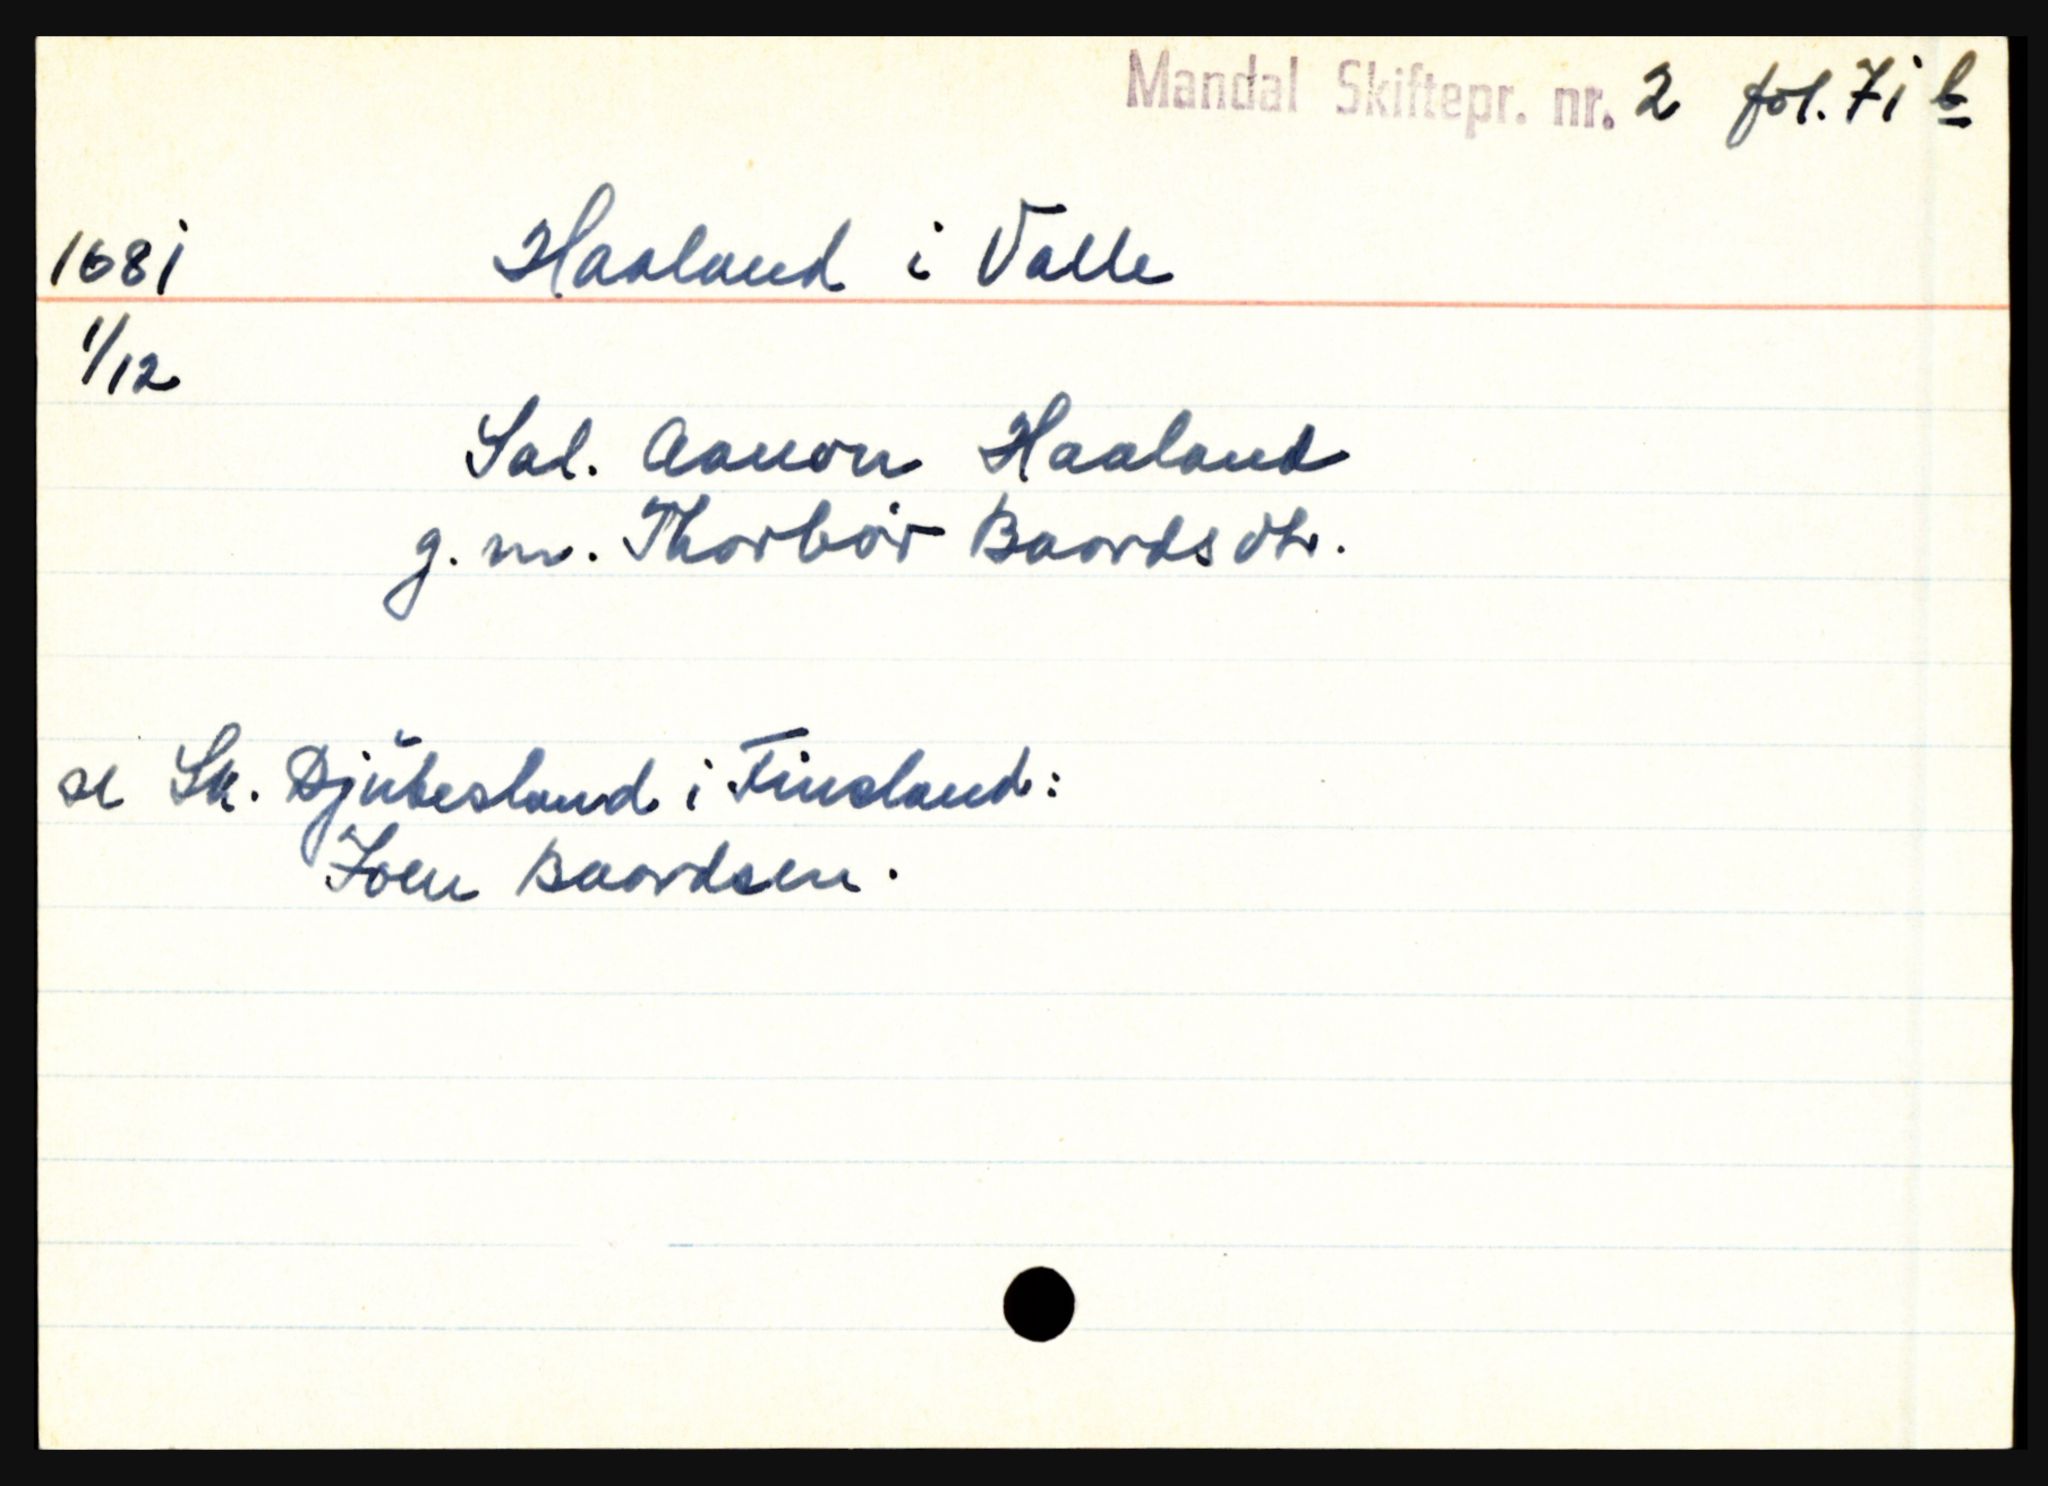 Mandal Skiftepr. nr. 2 fol. 71 b
1681 Haaland i Valle
1/12
Sal. Aanon Haaland
g. m. Thorbør Baardsdtr.
se Sk. Djubesland i Finsland:
Joen Baardsen.